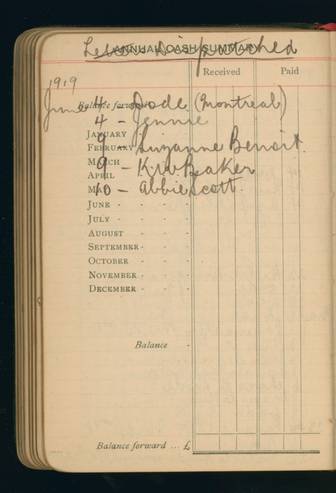 Letters Dispatched
ANNUAL CASH SUMMARY
Received Paid
1919
Balance forward
June 4 - Dode (Montreal)
4 - Jennie
JANUARY
9 - Suzanne Benoit.
FEBRUARY
MARCH
9 - K.W. Beaker
APRIL
MAY
10 - Abbie Scott.
JUNE - - -
JULY - - -
AUGUST - -
SEPTEMBER - -
OCTOBER - -
NOVEMBER - -
DECEMBER - -
Balance -
Balance forward ... £